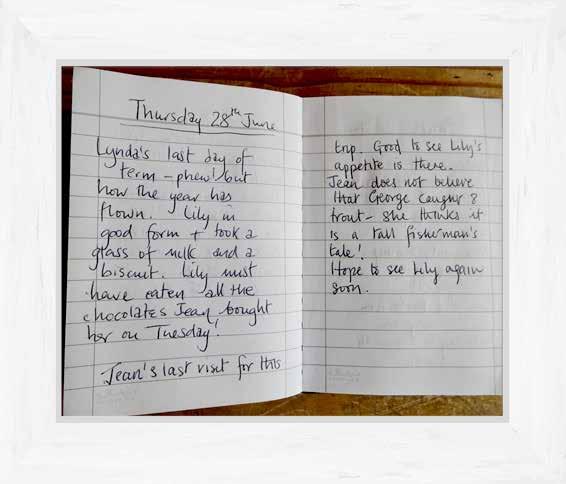 Thursday 28th June
Lynda's last day of
term - phew! but
how the year has
flown. Lily in
good form + took a
glass of milk and a
biscuit. Lily must
have eaten all the
chocolates Jean bought
her on Tuesday!
Jean's last visit for this
trip. Good to see Lily's
appetite is there.
Jean does not believe
that George caught 8
trout - she thinks it
is a tall fisherman's
tale!
Hope to see Lily again
soon.